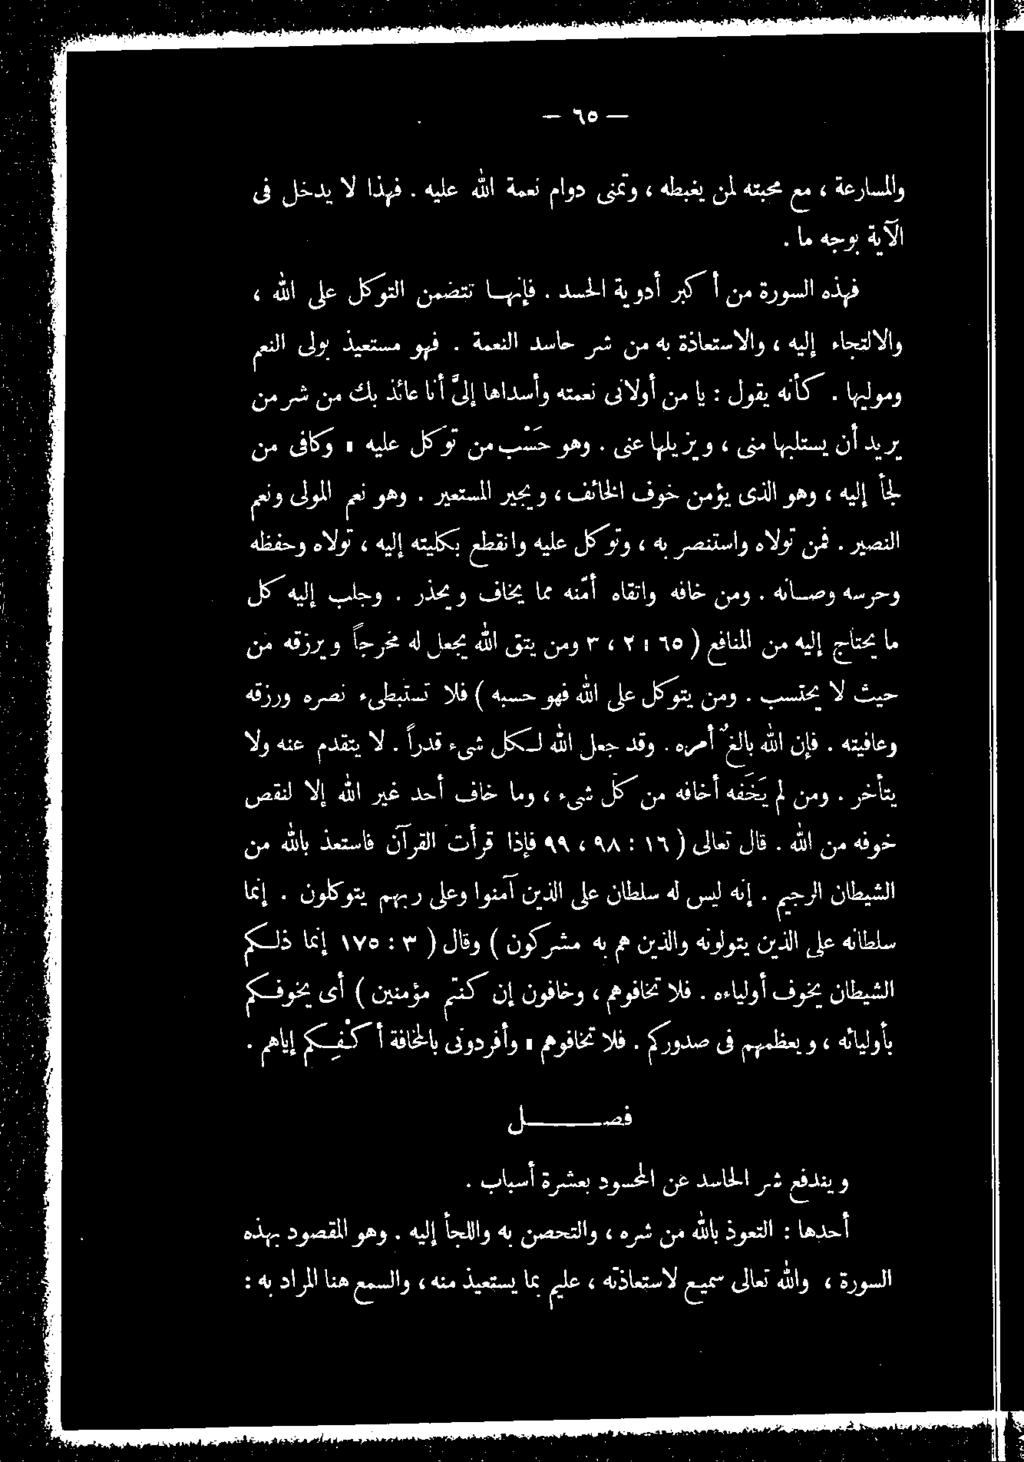 — ٦٥ —
والمسارعة ، مع محبته لمن يغبطه ، وتمنى دوام نعمة الله عليه . فهذا لا يدخل فى
الآية بوجه ما .
فهذه السورة من أكبر أدوية الحسد . فإنها تتضمن التوكل على الله ،
والالتجاء إليه ، والاستعاذة به من شر حاسد النعمة . فهو مستعيذ بولى النعم
وموليها . كأنه يقول : يا من أولانى نعمته وأسداها إلىَّ أنا عائذ بك من شر من
يريد أن يستلبها منى ، ويزيلها عنى . وهو حَسْب من توكل عليه ، وكافى من
لجأ إليه ، وهو الذى يؤمن خوف الخائف ، ويجير المستجير . وهو نعم المولى ونعم
النصير . فمن تولاه واستنصر به ، وتوكل عليه وانقطع بكليته إليه ، تولاه وحفظه
وحرسه وصانه . ومن خافه واتقاه أمّنه مما يخاف ويحذر . وجلب إليه كل
ما يحتاج إليه من المنافع ( ٦٥ : ٢ ، ٣ ومن يتق الله يجعل له مخرجاً ويرزقه من
حيث لا يحتسب . ومن يتوكل على الله فهو حسبه ) فلا تستبطىء نصره ورزقه
وعافيته . فإن الله بالغٌ أمره . وقد جعل الله لكل شىء قدراً . لا يتقدم عنه ولا
يتأخر . ومن لم يَخَفه أخافه من كل شىء ، وما خاف أحد غير الله إلا لنقص
خوفه من الله . قال تعالى ( ١٦ : ٩٨ ، ٩٩ فإذا قرأت القرآن فاستعذ بالله من
الشيطان الرجيم . إنه ليس له سلطان على الذين آمنوا وعلى ربهم يتوكلون . إنما
سلطانه على الذين يتولونه والذين هم به مشركون ) وقال ( ٣ : ١٧٥ إنما ذلكم
الشيطان يخوف أولياءه . فلا تخافوهم ، وخافون إن كنتم مؤمنين ) أى يخوفكم
بأوليائه ، ويعظمهم فى صدوركم . فلا تخافوهم ، وأفردونى بالمخافة أكْفِكم إياهم .
فصل
ويندفع شر الحاسد عن المحسود بعشرة أسباب .
أحدها : التعوذ بالله من شره ، والتحصن به واللجأ إليه . وهو المقصود بهذه
السورة ، والله تعالى سميع لاستعاذته ، عليم بما يستعيذ منه ، والسمع هنا المراد به :